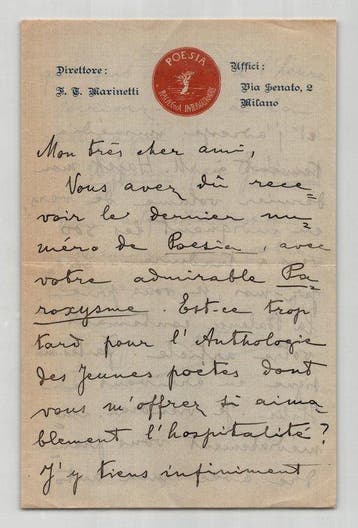 POESIA
RASSEGNA INTERNAZIONALE
Direttore :
F. T. Marinetti
Uffici :
Via Senato, 2
Milano
Mon très cher ami,
Vous avez dû rece=
voir le dernier nu=
méro de Poesia, avec
votre admirable Pa=
roxysme. Est-ce trop
tard pour l'Anthologie
des Jeunes poètes dont
vous m'offrez si aima=
blement l'hospitalité?
J'y tiens infiniment